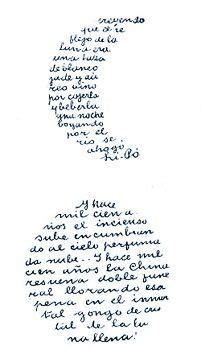 creyendo
que el re
flejo de la
luna era
una taza
de blanco
jade y aú
reo vino
por cogerla
y beberla
una noche
bogando
por el
río se
ahogó
Li-Pó
Y hace
mil cien a
ños el incienso
sube encumbran
do al cielo perfuma
da nube. Y hace mil
cien años la China
resuena doble fune
ral llorando esa
pena en el inmor
tal gongo de cris
tal de la lu
na llena!